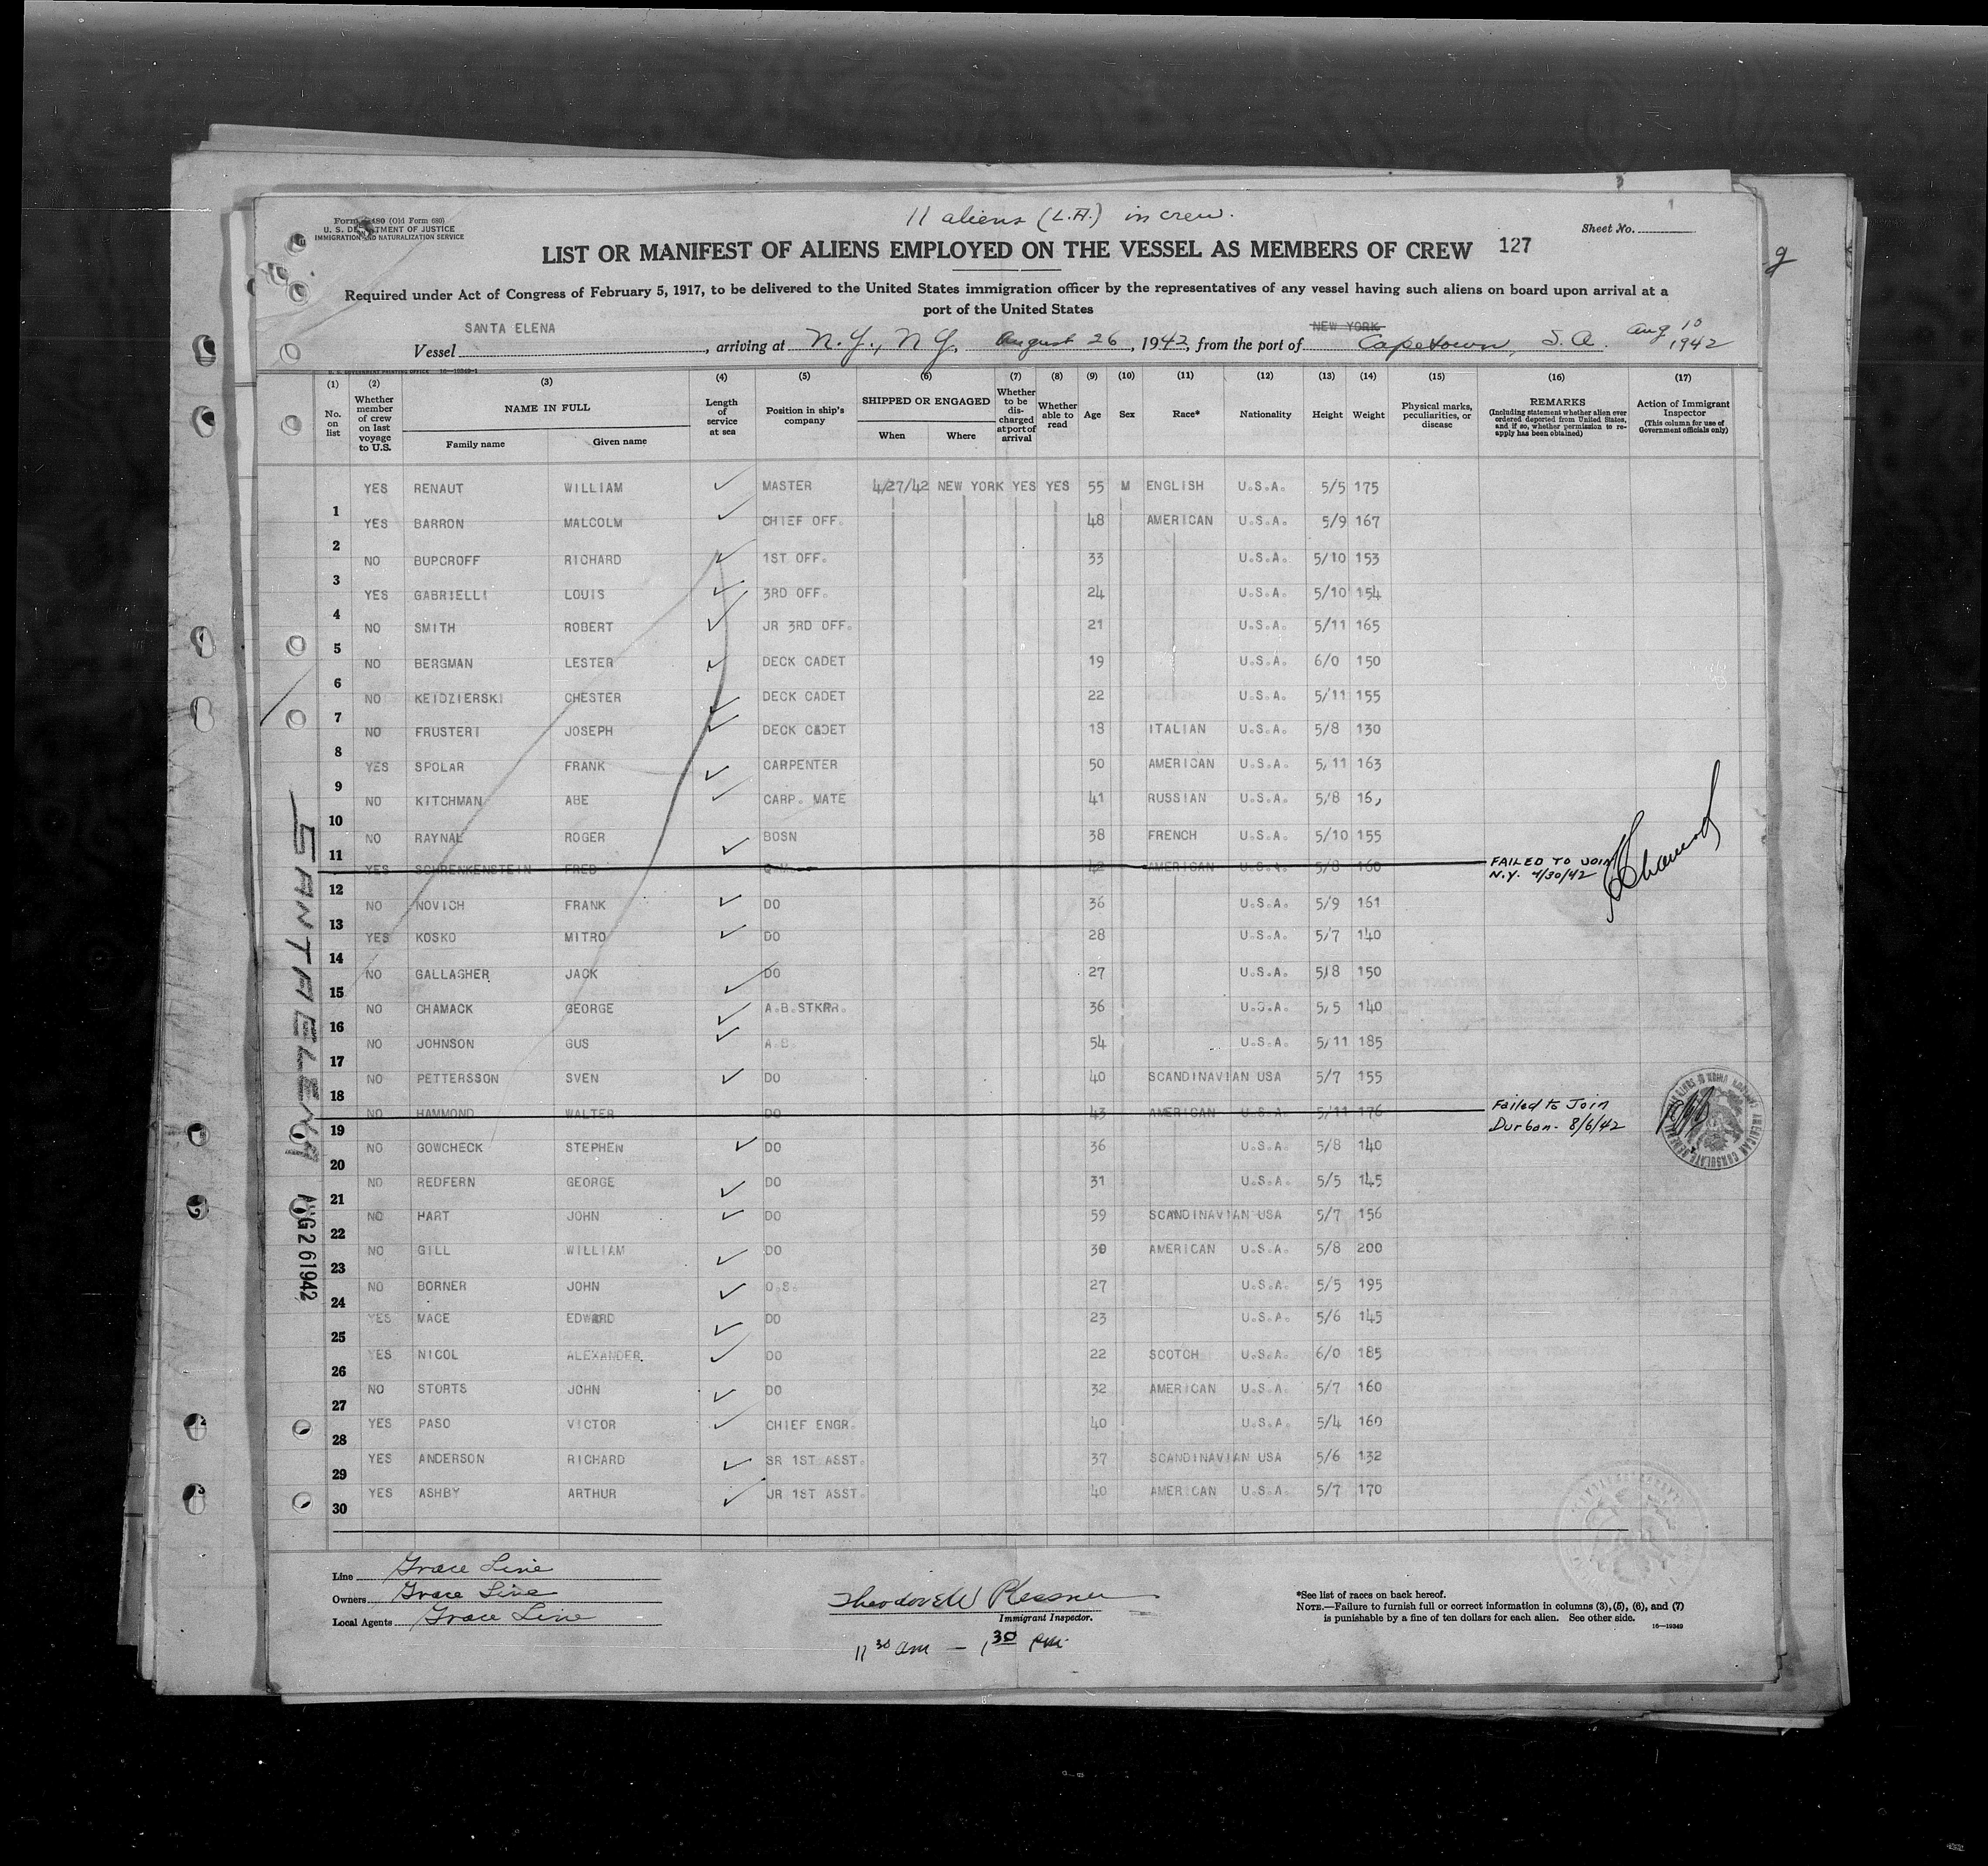 11 aliens (L.A.) in crew.
Form 480 (Old Form 680)
U. S. DEPARTMENT OF JUSTICE
IMMIGRATION AND NATURALIZATION SERVICE
Sheet No.
LIST OR MANIFEST OF ALIENS EMPLOYED ON THE VESSEL AS MEMBERS OF CREW 127
Required under Act of Congress of February 5, 1917, to be delivered to the United States immigration officer by the representatives of any vessel having such aliens on board upon arrival at a
port of the United States
SANTA ELENA NEW YORK
Vessel , arriving at N.Y., N.Y. August 26, 1942, from the port of Capetown, S.A. Aug 10 1942
U. S. GOVERNMENT PRINTING OFFICE 16—19349-1
(1) (2) (3) (4) (5) (6) (7) (8) (9) (10) (11) (12) (13) (14) (15) (16) (17)
No. on list
Whether member of crew on last voyage to U.S.
NAME IN FULL
Family name Given name
Length of service at sea
Position in ship's company
SHIPPED OR ENGAGED
When Where
Whether to be discharged at port of arrival
Whether able to read
Age Sex Race* Nationality Height Weight
Physical marks, peculiarities, or disease
REMARKS
(Including statement whether alien ever ordered deported from United States, and if so, whether permission to reapply has been obtained)
Action of Immigrant Inspector
(This column for use of Government officials only)
YES RENAUT WILLIAM ✓ MASTER 4/27/42 NEW YORK YES YES 55 M ENGLISH U.S.A. 5/5 175
1 YES BARRON MALCOLM ✓ CHIEF OFF. 48 AMERICAN U.S.A. 5/9 167
2 NO BUPCROFF RICHARD ✓ 1ST OFF. 33 U.S.A. 5/10 153
3 YES GABRIELLI LOUIS ✓ 3RD OFF. 24 U.S.A. 5/10 154
4 NO SMITH ROBERT ✓ JR 3RD OFF. 21 U.S.A. 5/11 165
5 NO BERGMAN LESTER ✓ DECK CADET 19 U.S.A. 6/0 150
6 NO KEIDZIERSKI CHESTER ✓ DECK CADET 22 U.S.A. 5/11 155
7 NO FRUSTERI JOSEPH ✓ DECK CADET 18 ITALIAN U.S.A. 5/8 130
8 YES SPOLAR FRANK ✓ CARPENTER 50 AMERICAN U.S.A. 5/11 163
9 NO KITCHMAN ABE ✓ CARP. MATE 41 RUSSIAN U.S.A. 5/8
10 NO RAYNAL ROGER ✓ BOSN 38 FRENCH U.S.A. 5/10 155
11 YES SCHRENKENSTEIN FRED Q.M. 42 AMERICAN U.S.A. 5/8 160 FAILED TO JOIN
N.Y. 4/30/42
12 NO NOVICH FRANK ✓ DO 36 U.S.A. 5/9 161
13 YES KOSKO MITRO ✓ DO 28 U.S.A. 5/7 140
14 NO GALLAGHER JACK ✓ DO 27 U.S.A. 5/8 150
15 NO CHAMACK GEORGE ✓ A.B.STKRR. 36 U.S.A. 5/5 140
16 NO JOHNSON GUS ✓ A.B. 54 U.S.A. 5/11 185
17 NO PETTERSSON SVEN ✓ DO 40 SCANDINAVIAN USA 5/7 155
18 NO HAMMOND WALTER DO 43 AMERICAN U.S.A. 5/11 176 Failed to Join
Durban. 8/6/42
19 NO GOWCHECK STEPHEN ✓ DO 36 U.S.A. 5/8 140
20 NO REDFERN GEORGE ✓ DO 31 U.S.A. 5/5 145
21 NO HART JOHN ✓ DO 59 SCANDINAVIAN USA 5/7 156
22 NO GILL WILLIAM ✓ DO 30 AMERICAN U.S.A. 5/8 200
23 NO BORNER JOHN ✓ O.S. 27 U.S.A. 5/5 195
24 YES MACE EDWARD ✓ DO 23 U.S.A. 5/6 145
25 YES NICOL ALEXANDER. ✓ DO 22 SCOTCH U.S.A. 6/0 185
26 NO STORTS JOHN ✓ DO 32 AMERICAN U.S.A. 5/7 160
27 YES PASO VICTOR ✓ CHIEF ENGR. 40 U.S.A. 5/4 160
28 YES ANDERSON RICHARD ✓ SR 1ST ASST. 37 SCANDINAVIAN USA 5/6 132
29 YES ASHBY ARTHUR ✓ JR 1ST ASST. 40 AMERICAN U.S.A. 5/7 170
30
SANTA ELENA
AUG 26 1942
AMERICAN CONSULATE GENERAL
Line Grace Line
Owners Grace Line
Local Agents Grace Line
Theodore W Plessner
Immigrant Inspector.
11 30 am — 1 30 pm.
*See list of races on back hereof.
NOTE.—Failure to furnish full or correct information in columns (3), (5), (6), and (7)
is punishable by a fine of ten dollars for each alien. See other side.
16—19349